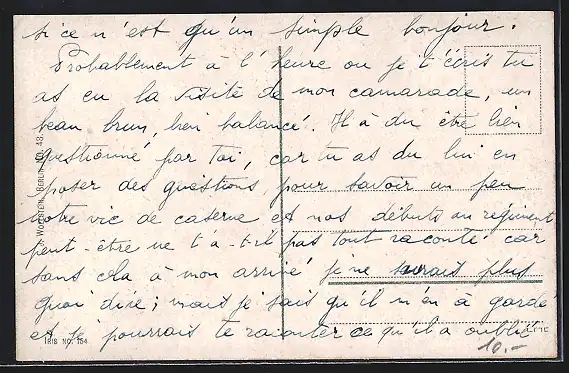 si ce n'est qu'un simple bonjour.
Probablement à l'heure ou je t'écris tu
as eu la visite de mon camarade, un
beau brun, bien balancé. Il à du être bien
questionné par toi, car tu as du lui en
poser des questions, pour savoir un peu
notre vie de caserne et nos débuts au régiment
peut-être ne t'a-t-il pas tout raconté car
sans cela à mon arrivé je ne saurais plus
quoi dire; mais je sais qu'il m'en à gardé
et je pourrais te raconter ce qu'il a oublié
10.-
WOLFSTEIN, BERLIN NO. 43.
IRIS NO. 154